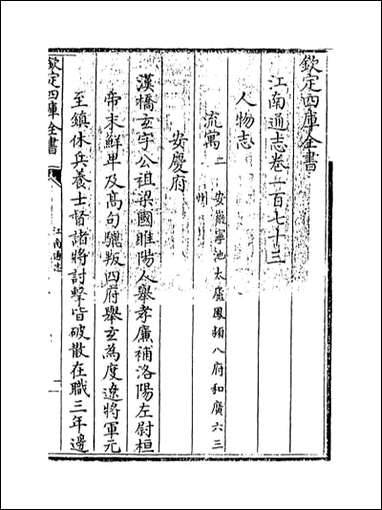 欽定四庫全書
江南通志卷一百七十三
人物志
流寓二 安徽寧池太廬鳳潁八府和廣六三州
安慶府
漢橋玄字公祖梁國睢陽人舉孝廉補洛陽左尉桓
帝末鮮卑及高句驪叛四府舉玄為度遼將軍元
至鎮休兵養士督諸將討擊皆破散在職三年邊
欽定四庫全書
江南通志